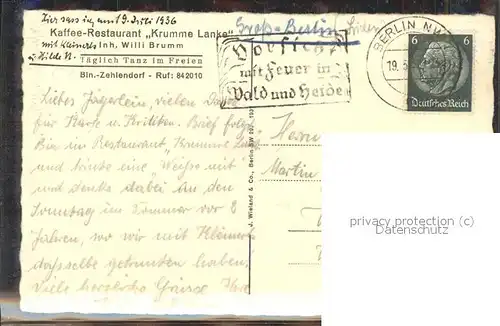 Hier sass ich am 19. Juli 1936
Kaffee-Restaurant „Krumme Lanke"
mit Kleinerts Inh. Willi Brumm
u. Hilde N. Täglich Tanz im Freien
Bln.-Zehlendorf - Ruf: 842010
Groß-Berlin
Vorsicht
mit Feuer in
Wald und Heide
BERLIN NW
19.
6 6
Deutsches Reich
Liebes Jägerlein, vielen Dank
für Karte u. Kritiken. Brief folgt.
Bin im Restaurant „Krumme Lanke"
und trinke eine „Weiße mit"
und denke dabei an den
Sonntag im Sommer vor 2
Jahren, wo wir mit Kleinerts
dasselbe getrunken haben.
Viele herzliche Grüsse
J. Wieland & Co., Berlin SW
Herrn
Martin
privacy protection
Datenschutz